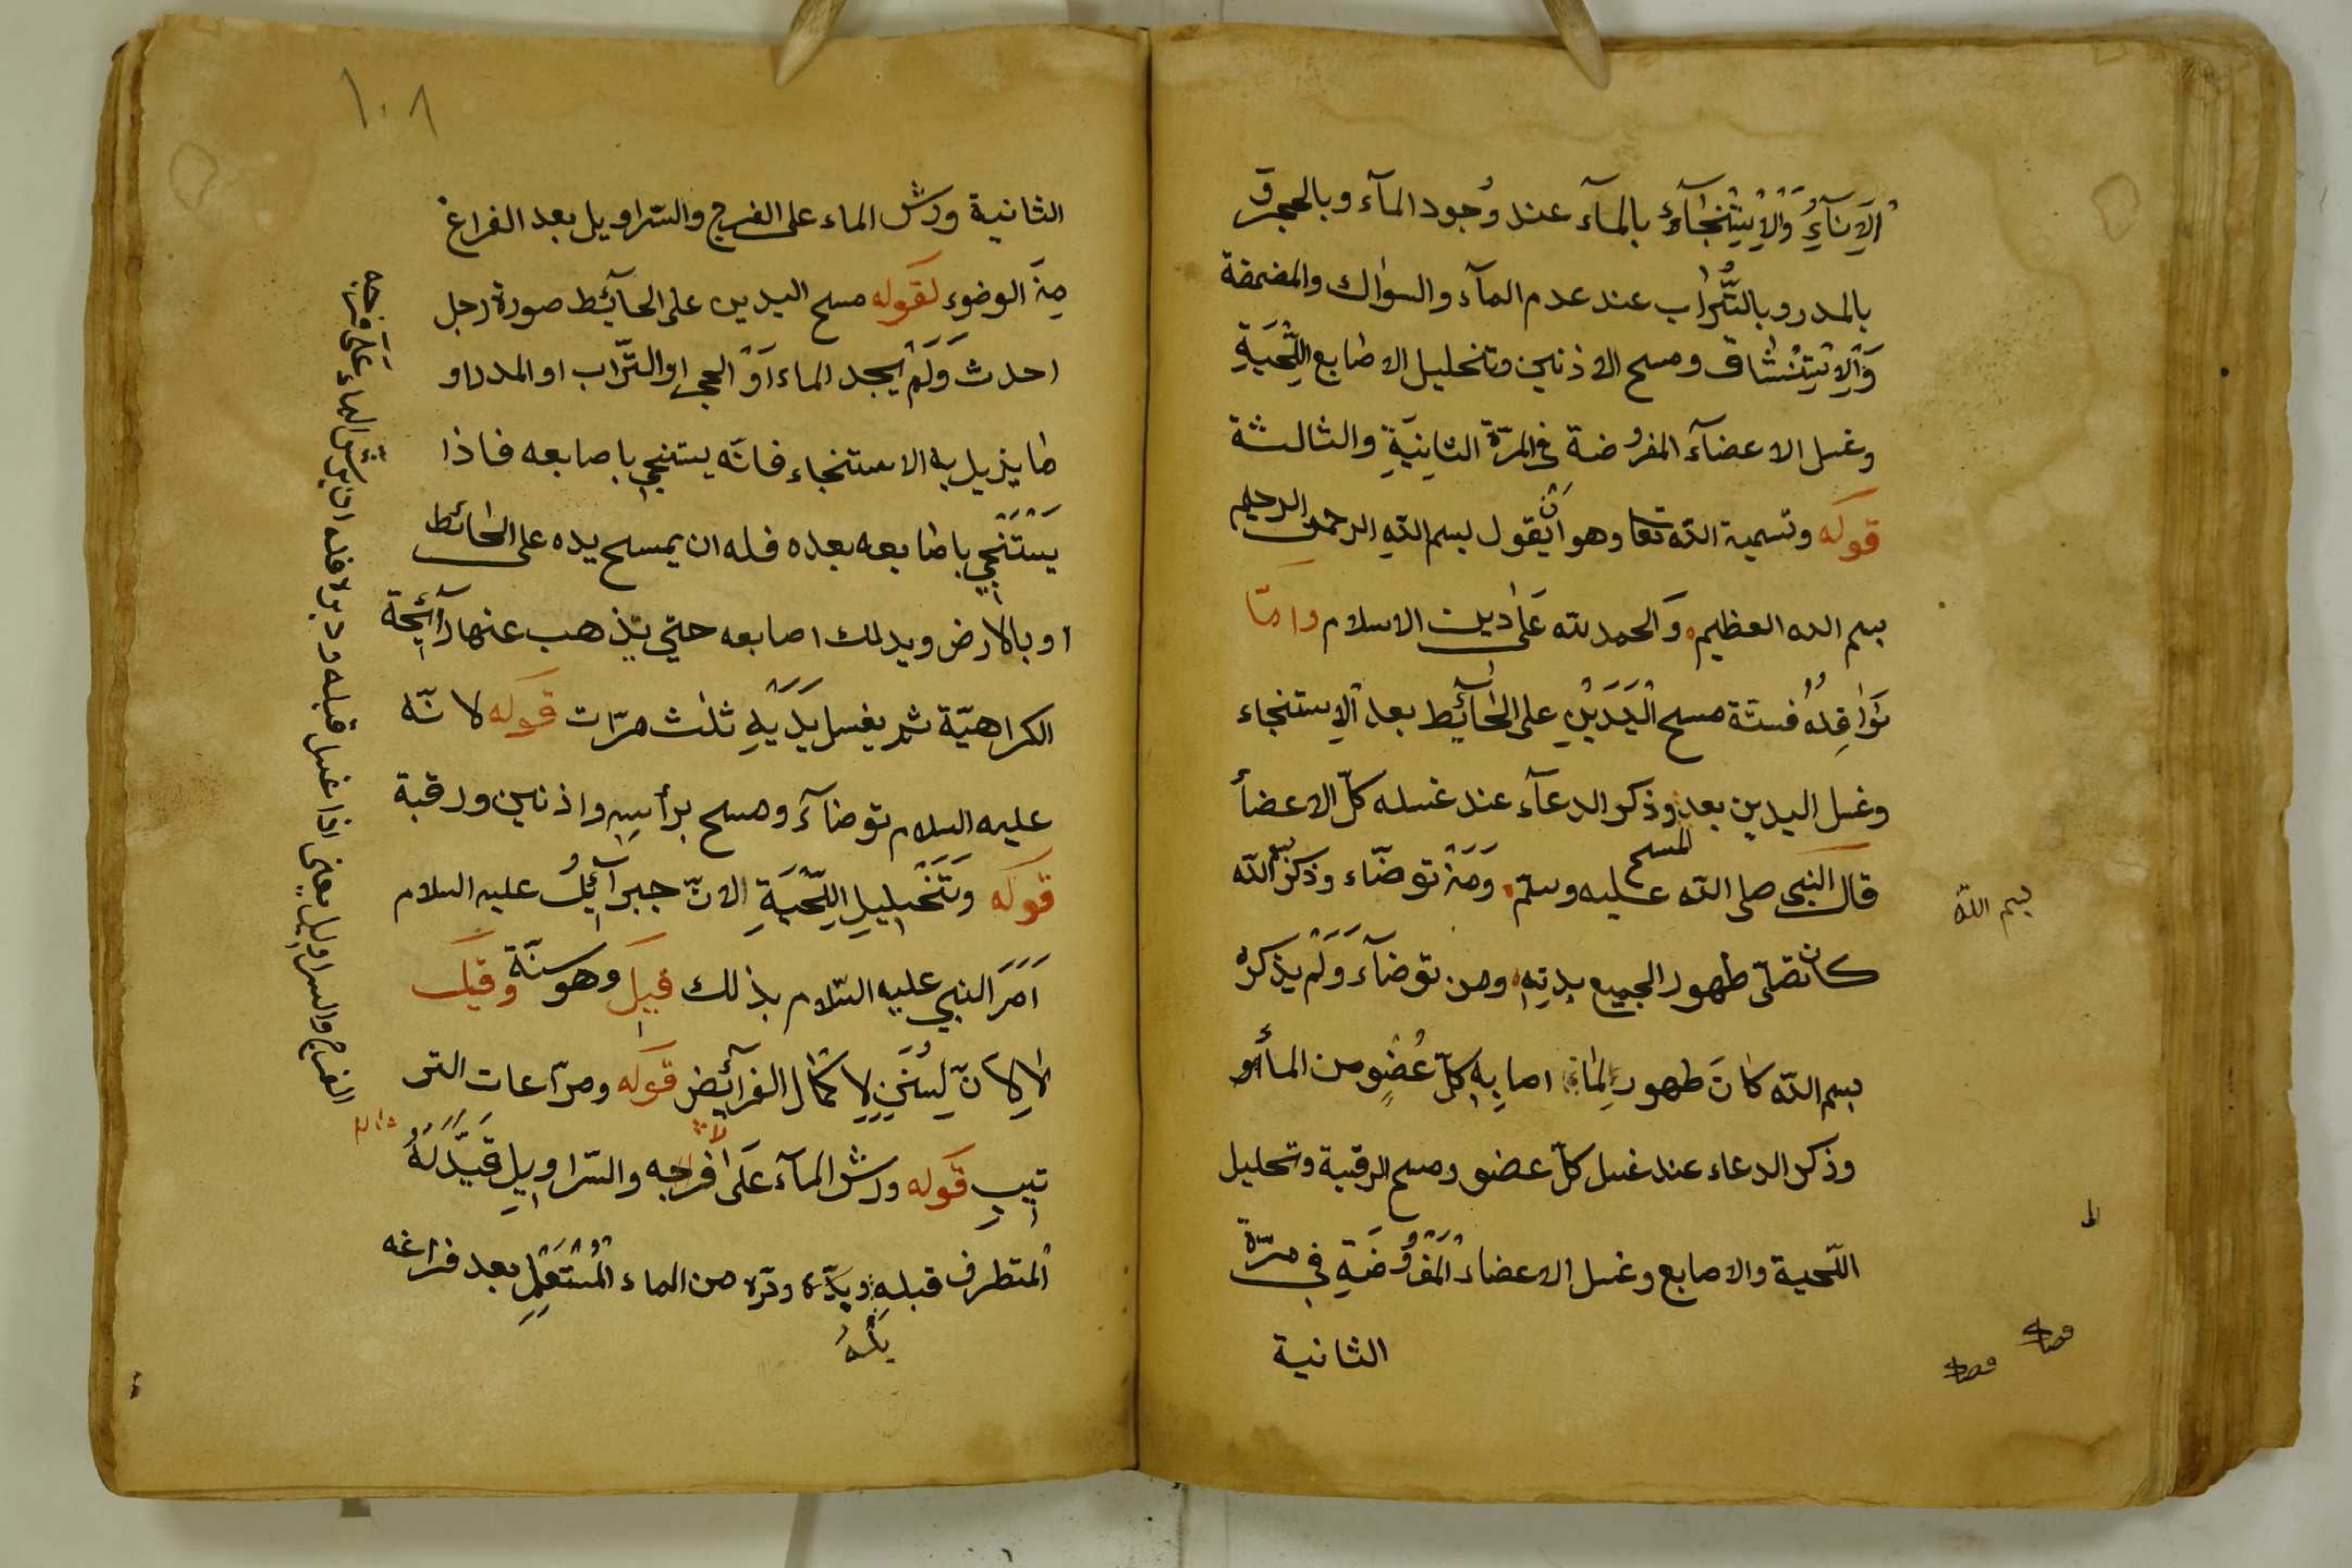 الإناء والاستنجاء بالماء عند وُجود المآء وبالحجر و
بالمدر وبالتُّراب عند عدم المآء والسواك والمضمضة
وَالِاسْتِنْشَاق ومسح الاذنين وتخليل الاصابع اللِّحْيَةِ
وغسل الاعضآء المفروضة في المرّة الثانِيَةِ والثالثة
قوله وتسمية اللّه تعا وهو اَنْ يقول بسم اللّه الرحمن الرحيم
بسم الله العظيم وَالحمد للّه عَلىٰ دين الاسلام وامّا
نَوٰافِلُهُ فستّة مسح الْيَدَيْنِ على الحٰآئِط بعد الاستنجاء
وغسل اليدين بعد المسح وذكر الدعآء عند غسله كلّ الاعضأ
قال النبي صلى اللّه عليه وسلّم وَمَنْ توضّاء وذكر بسم اللّه
كان طهور الجميع بدنِهِ ومن توضآء وَلَمْ يذكره
بسم اللّه
بسم اللّه كانَ طهور لِمٰا اصابِهِ كلّ عُضْوٍ من المأ
وذكر الدعاء عند غسل كلّ عضو ومسح الرقبة وتخليل
اللّحية والاصابع وغسل الاعضاء الْمَفْرُوضَةِ في مرّة
الثانية
١٠٨
الثانية ورش الماء على الفرج والسّراويل بعد الفراغ
مِنَ الوضوء لقوله مسح اليدين على الحآئِط صورة رجل
احدث وَلَمْ يجد الماء اَوْ الحجر او التّراب او المدر او
ما يزيل به الاستنجاء فانّه يستنجي باصابعه فاذا
يَسْتَنْجِي باصابعه بعده فله ان يمسح يده على الحائط
او بالارض ويدلك اصابعه حتي يذهب عنها رآئِحة
الكراهيّة ثم يغسل يَدَيْهِ ثلٰث مرّات قوله لانّه
عليه السلام توضآء ومسح برأسِهِ واذنين ورقبة
قوله وَتَخْلِيلِ اللِّحْيَةِ لانّ جبرآئِيلُ عليه السلام
اَمَرَ النبي عليه السّلام بذلك قيل وهو سنّة وقيل
لا لِانَّ السُنَنِ لِاكمال الفرآئِض قوله ومرآعات التر
تيب قوله ورش المآء عَلىٰ فرجه والسّراوِيلِ قَيَّدَ لَهُ
المتطرف قبله من الماء الْمُسْتَعْمِلِ بعد فراغه
بَلَّهُ
الفرج والسراويل يعني اذا غسل قبله ودبر لا فله ان يرش الماء عَلىٰ فرجه